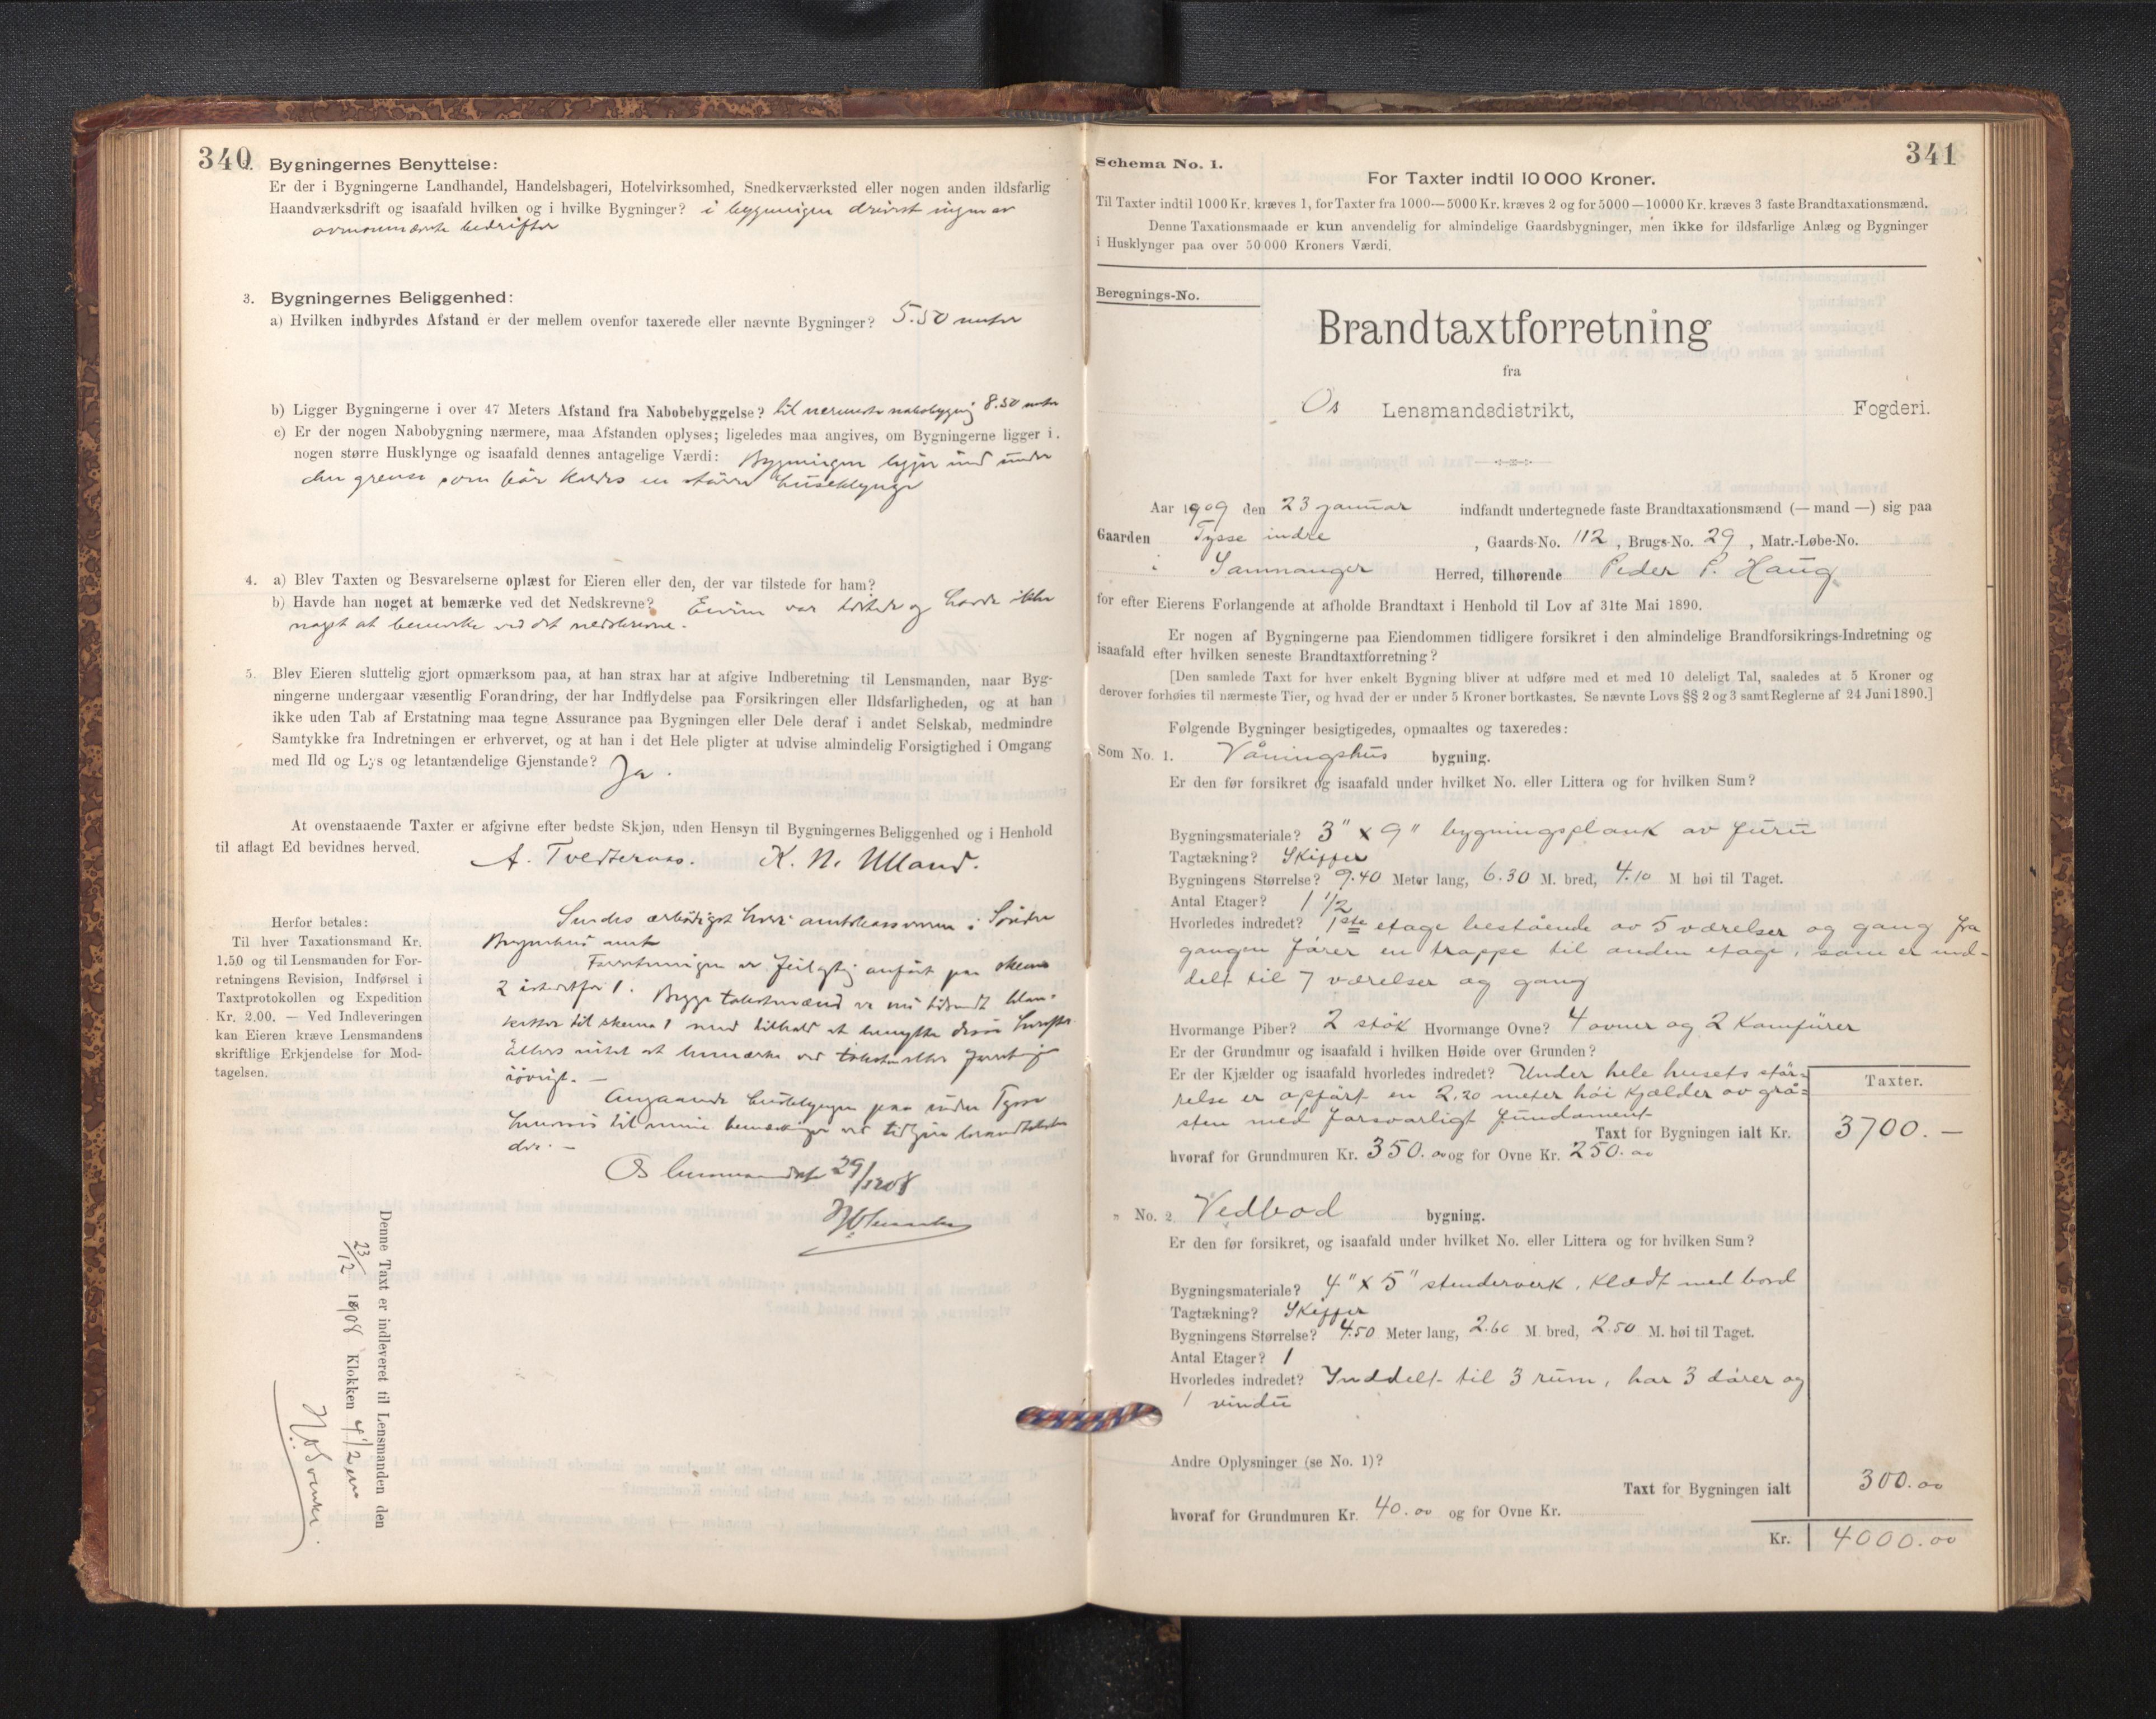 340
2. Bygningernes Benyttelse:
Er der i Bygningerne Landhandel, Handelsbageri, Hotelvirksomhed, Snedkerværksted eller nogen anden ildsfarlig
Haandværksdrift og isaafald hvilken og i hvilke Bygninger? i bygningen drives ingen av
ovennævnte bedrifter
3. Bygningernes Beliggenhed:
a) Hvilken indbyrdes Afstand er der mellem ovenfor taxerede eller nævnte Bygninger? 5.50 meter
b) Ligger Bygningerne i over 47 Meters Afstand fra Nabobebyggelse? til nermeste nabobygnig 8.50 meter
c) Er der nogen Nabobygning nærmere, maa Afstanden oplyses; ligeledes maa angives, om Bygningerne ligger i
nogen større Husklynge og isaafald dennes antagelige Værdi: Bygningen ligger ind under
den grense som bør kaldes en større huseklynge
4. a) Blev Taxten og Besvarelserne oplæst for Eieren eller den, der var tilstede for ham?
b) Havde han noget at bemærke ved det Nedskrevne? Eieren var tilstede og havde ikke
noget at bemerke ved det nedskrevne.
5. Blev Eieren sluttelig gjort opmærksom paa, at han strax har at afgive Indberetning til Lensmanden, naar Byg-
ningerne undergaar væsentlig Forandring, der har Indflydelse paa Forsikringen eller Ildsfarligheden, og at han
ikke uden Tab af Erstatning maa tegne Assurance paa Bygningen eller Dele deraf i andet Selskab, medmindre
Samtykke fra Indretningen er erhvervet, og at han i det Hele pligter at udvise almindelig Forsigtighed i Omgang
med Ild og Lys og letantændelige Gjenstande? Ja.
At ovenstaaende Taxter er afgivne efter bedste Skjøn, uden Hensyn til Bygningernes Beliggenhed og i Henhold
til aflagt Ed bevidnes herved.
A. Tvedteraas. K. N. Ulland.
Herfor betales:
Til hver Taxationsmand Kr.
1.50 og til Lensmanden for For-
retningens Revision, Indførsel i
Taxtprotokollen og Expedition
Kr. 2.00. — Ved Indleveringen
kan Eieren kræve Lensmandens
skriftlige Erkjendelse for Mod-
tagelsen.
Sendes ærbødigst herr amtskassereren i Søndre
Bergenhus amt
Forretningen er feilagtig anført paa skema
2 istedetfor 1. Begge takstmænd er nu tilsendt blan-
ketter til skema 1 med tilhold at benytte disse herefter.
Ellers intet at bemærke ved forretningen
iøvrigt. —
Angaaende husklyngen paa indre Tysse
henvises til mine bemærkninger ved tidligere brandtakster
der. —
Os lensmandsk 29/12 08
Denne Taxt er indleveret til Lensmanden den
23/12 1908 Klokken 4 1/2 em
341
Schema No. 1.
For Taxter indtil 10 000 Kroner.
Til Taxter indtil 1000 Kr. kræves 1, for Taxter fra 1000—5000 Kr. kræves 2 og for 5000—10000 Kr. kræves 3 faste Brandtaxationsmænd.
Denne Taxationsmaade er kun anvendelig for almindelige Gaardsbygninger, men ikke for ildsfarlige Anlæg og Bygninger
i Husklynger paa over 50 000 Kroners Værdi.
Beregnings-No.
Brandtaxtforretning
fra
Os Lensmandsdistrikt, Fogderi.
Aar 1909 den 23 januar indfandt undertegnede faste Brandtaxationsmænd (— mand —) sig paa
Gaarden Tysse indre, Gaards-No. 112, Brugs-No. 29, Matr.-Løbe-No.
i Samnanger Herred, tilhørende Peder P. Haug
for efter Eierens Forlangende at afholde Brandtaxt i Henhold til Lov af 31te Mai 1890.
Er nogen af Bygningerne paa Eiendommen tidligere forsikret i den almindelige Brandforsikrings-Indretning og
isaafald efter hvilken seneste Brandtaxtforretning?
[Den samlede Taxt for hver enkelt Bygning bliver at udføre med et med 10 deleligt Tal, saaledes at 5 Kroner og
derover forhøies til nærmeste Tier, og hvad der er under 5 Kroner bortkastes. Se nævnte Lovs §§ 2 og 3 samt Reglerne af 24 Juni 1890.]
Følgende Bygninger besigtigedes, opmaaltes og taxeredes:
Som No. 1. Våningshus bygning.
Er den før forsikret og isaafald under hvilket No. eller Littera og for hvilken Sum?
Bygningsmateriale? 3" x 9" bygningsplank av furu
Tagtækning? Skiffer
Bygningens Størrelse? 9.40 Meter lang, 6.30 M. bred, 4.10 M høi til Taget.
Antal Etager? 1 1/2
Hvorledes indredet? 1ste etage bestående av 5 værelser og gang fra
gangen fører en trappe til anden etage, som er ind-
delt til 7 værelser og gang
Hvormange Piber? 2 støk Hvormange Ovne? 4 ovner og 2 Kamfürer
Er der Grundmur og isaafald i hvilken Høide over Grunden?
Er der Kjælder og isaafald hvorledes indredet? Under hele husets stør-
relse er opført en 2.20 meter høi Kjælder av grå-
sten med forsvarligt fundament
Taxter.
Taxt for Bygningen ialt Kr. 3700. —
hvoraf for Grundmuren Kr. 350.00 og for Ovne Kr. 250.00
" No. 2 Vedbod bygning.
Er den før forsikret, og isaafald under hvilket No. eller Littera og for hvilken Sum?
Bygningsmateriale? 4" x 5" stenderverk, Klædt med bord
Tagtækning? Skiffer
Bygningens Størrelse? 4.50 Meter lang, 2.60 M bred, 2.50 M. høi til Taget.
Antal Etager? 1
Hvorledes indredet? Inddelt til 3 rum, har 3 dører og
1 vindu
Andre Oplysninger (se No. 1)?
Taxt for Bygningen ialt 300.00
hvoraf for Grundmuren Kr. 40.00 og for Ovne Kr.
Kr. 4000.00